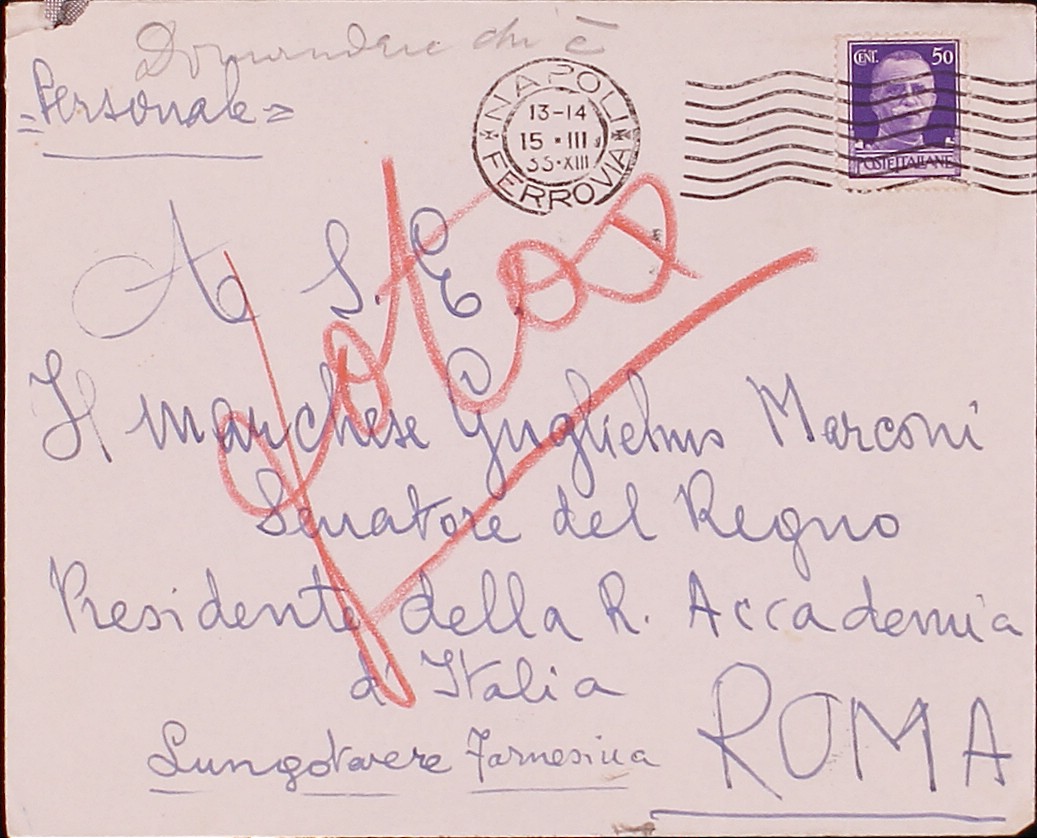 Domandare chi è
=Personale=
NAPOLI
13-14
15 · III
35·XIII
FERROVIA
CENT. 50
POSTE ITALIANE
A S. E.
Il marchese Guglielmo Marconi
Senatore del Regno
Presidente della R. Accademia
d'Italia
Lungotevere Farnesina
ROMA